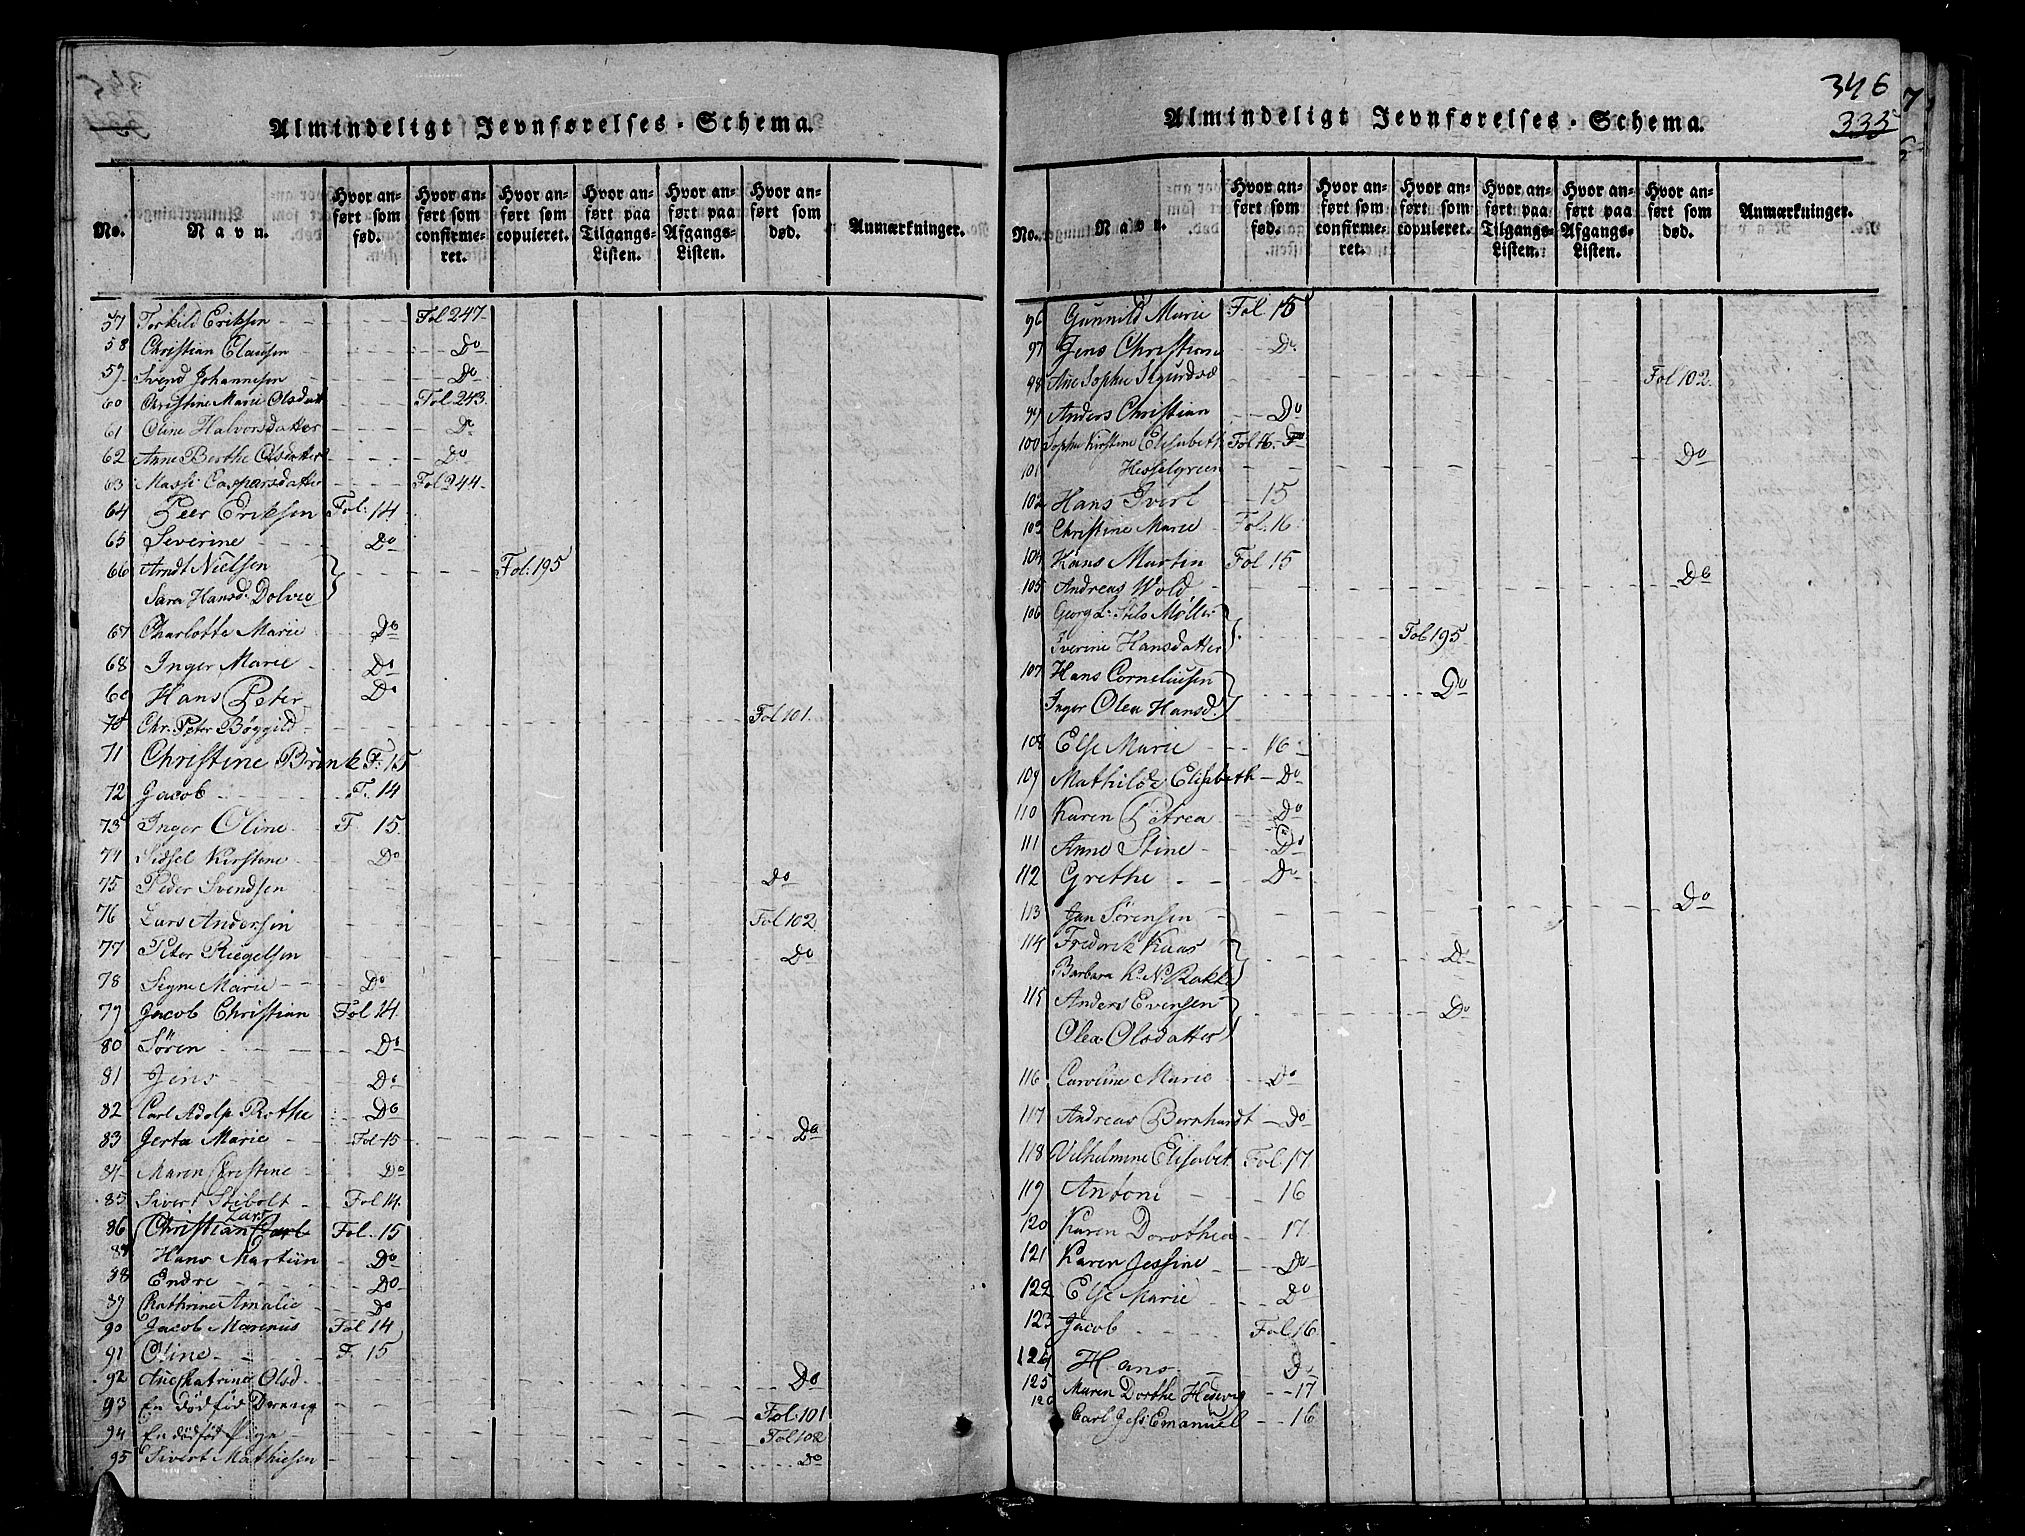 Almindeligt Jevnførelses-Schema.
No. Navn. Hvor anført som fød. Hvor anført som confirmeret. Hvor anført som copuleret. Hvor anført paa Tilgangs-Listen. Hvor anført paa Afgangs-Listen. Hvor anført som død. Anmærkninger.
57 Torkild Eriksen Fol 247.
58 Christian Clausen Do
59 Svend Johannesen Do
60 Christine Marie Olsdatt Fol 243.
61 Oline Halvorsdatter Do
62 Anne Berthe Olsdatter Do
63 Massi Caspersdatter Fol 244.
64 Peer Eriksen Fol: 14
65 Severine Do
66 Arndt Nielsen Fol: 195
Sara Hansd: Dolvie
67 Charlotte Marie Do
68 Inger Marie Do
69 Hans Peter Do
70 Chr. Peter Bøggild Fol 101.
71 Christine Brink F. 15
72 Jacob F. 14
73 Inger Oline F 15.
74 Sidsel Kirstine Do
75 Peder Svendsen Do
76 Lars Andersen Fol 102
77 Peter Riegelsen Do
78 Signe Marie Do
79 Jacob Christian Fol 14.
80 Søren Do
81 Jens Do
82 Carl Adolp Rothe Do
83 Jerta Marie Fol 15 Do
84 Maren Christine Do
85 Sivert Stibolt Fol 14.
86 Christian Carl Lars Fol. 15
87 Hans Martiin Do
88 Endre Do
89 Cathrine Amalie Do
90 Jacob Marenus Fol 14
91 Oline F. 15
92 Ane Catrine Olsd. Do
93 En dödfød Dreng Fol: 101
94 En dödfød Pige Fol 102
95 Sivert Mathiesen Do
346
335
Almindeligt Jevnførelses-Schema.
No. Navn. Hvor anført som fød. Hvor anført som confirmeret. Hvor anført som copuleret. Hvor anført paa Tilgangs-Listen. Hvor anført paa Afgangs-Listen. Hvor anført som død. Anmærkninger.
96 Gunnild Marie Fol. 15
97 Jens Christian Do
98 Ane Sophie Fol 102.
99 Anders Christian Do
100 Sophie Kirstine Elisabeth Fol 16.
101 Hesselgreen Do
102 Hans Iverl 15
103 Christine Marie Fol. 16
104 Hans Martin Fol 15
105 Andreas Wold Do
106 Georg L: Stils Møller Fol 195
Iverine Hansdatter
107 Hans Corneliusen Do
Inger Olea Hansd.
108 Else Marie 16
109 Mathilde Elisabeth Do
110 Karen Petrea Do
111 Anne Stine Do
112 Grethe Do
113 Jan Sørensen Do
114 Frederik Kaas Do
Barbara K. N. Bakke
115 Anders Evensen Do
Olea Olsdatter
116 Caroline Marie Do
117 Andreas Bernhardt Do
118 Vilhelmine Elisabet Fol. 17.
119 Antoni 16
120 Karen Dorothea 17.
121 Karen Jessine Do
122 Else Marie Do
123 Jacob Fol. 16.
124 Hans Do
125 Maren Dorthe Hedevig 17
126 Carl Jess: Emanuel 16